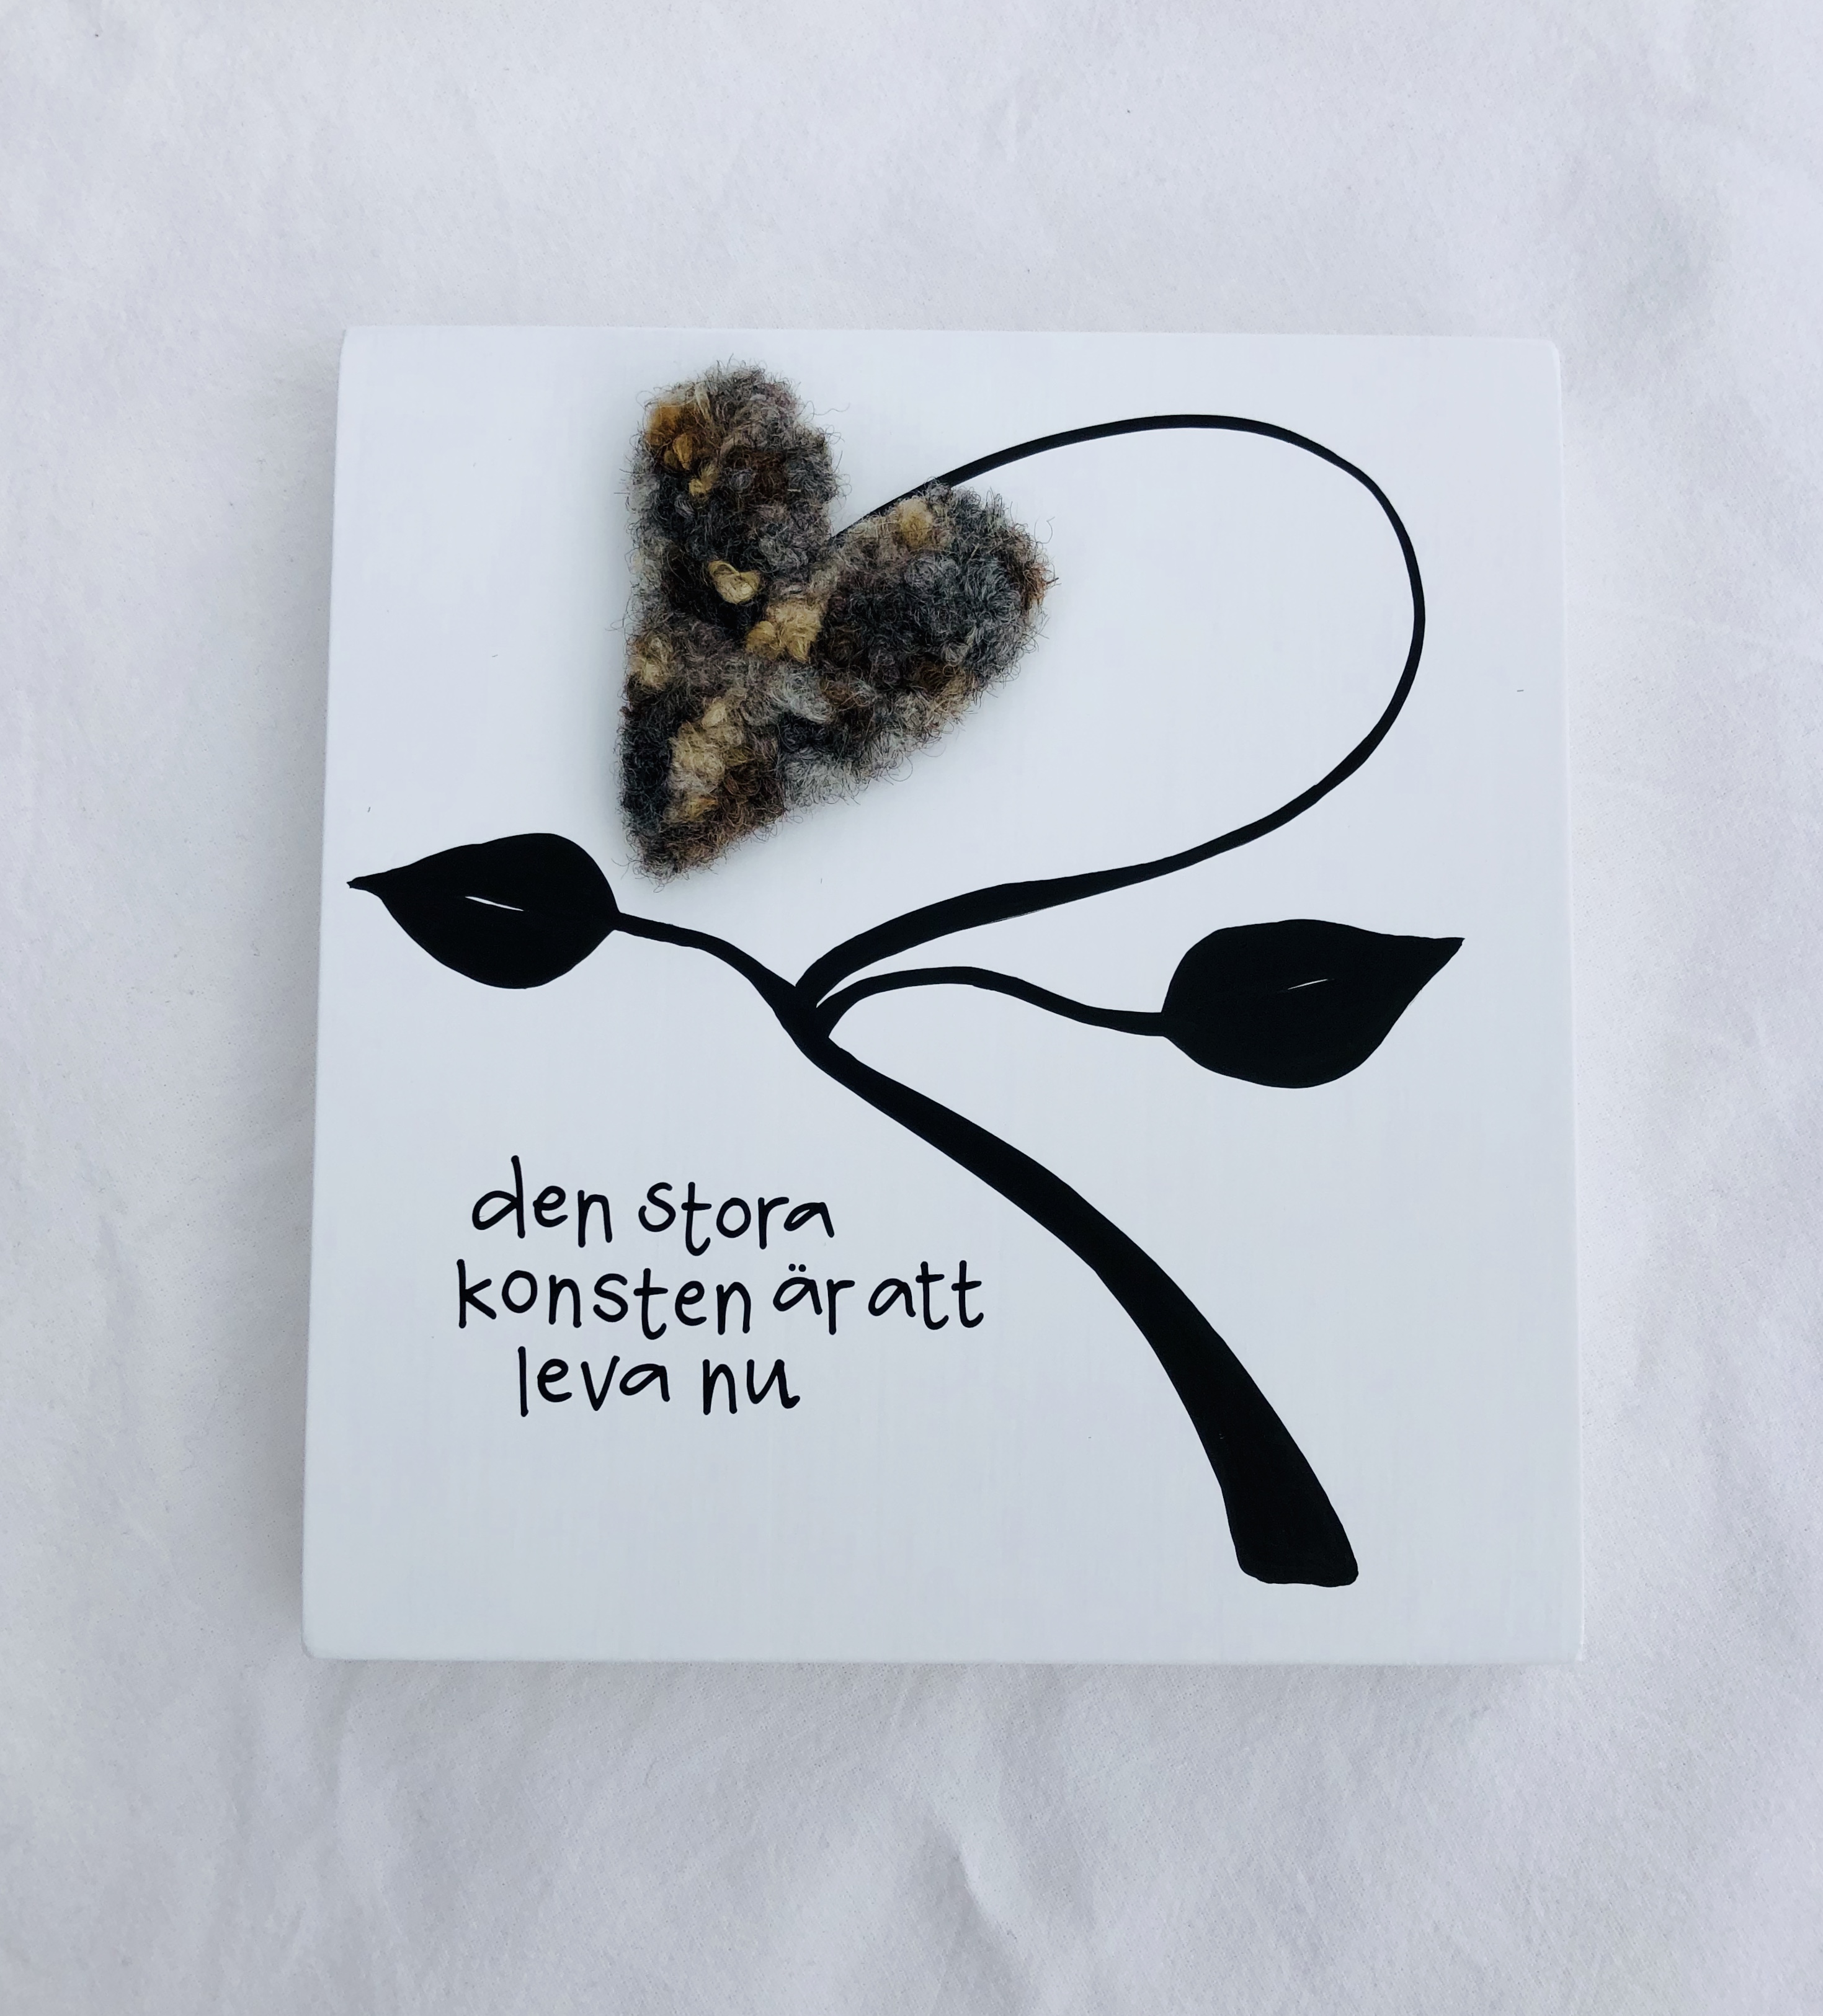 den stora
konsten är att
leva nu